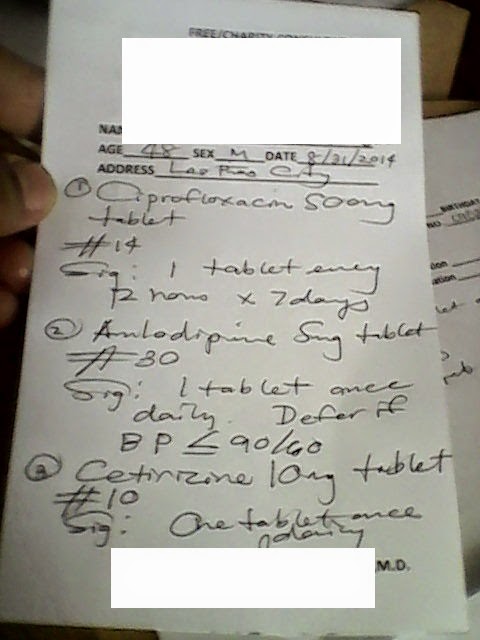 FREE/CHARITY
AGE 48 SEX M DATE 8/21/2014
ADDRESS City
① Ciprofloxacin 500mg
tablet
#14
Sig: 1 tablet every
12 hours x 7days
② Amlodipine 5mg tablet
#30
Sig: 1 tablet once
daily. Defer if
BP ≤ 90/60
③ Cetirizine 10mg tablet
#10
Sig: One tablet once
daily
M.D.
BIRTHDAT